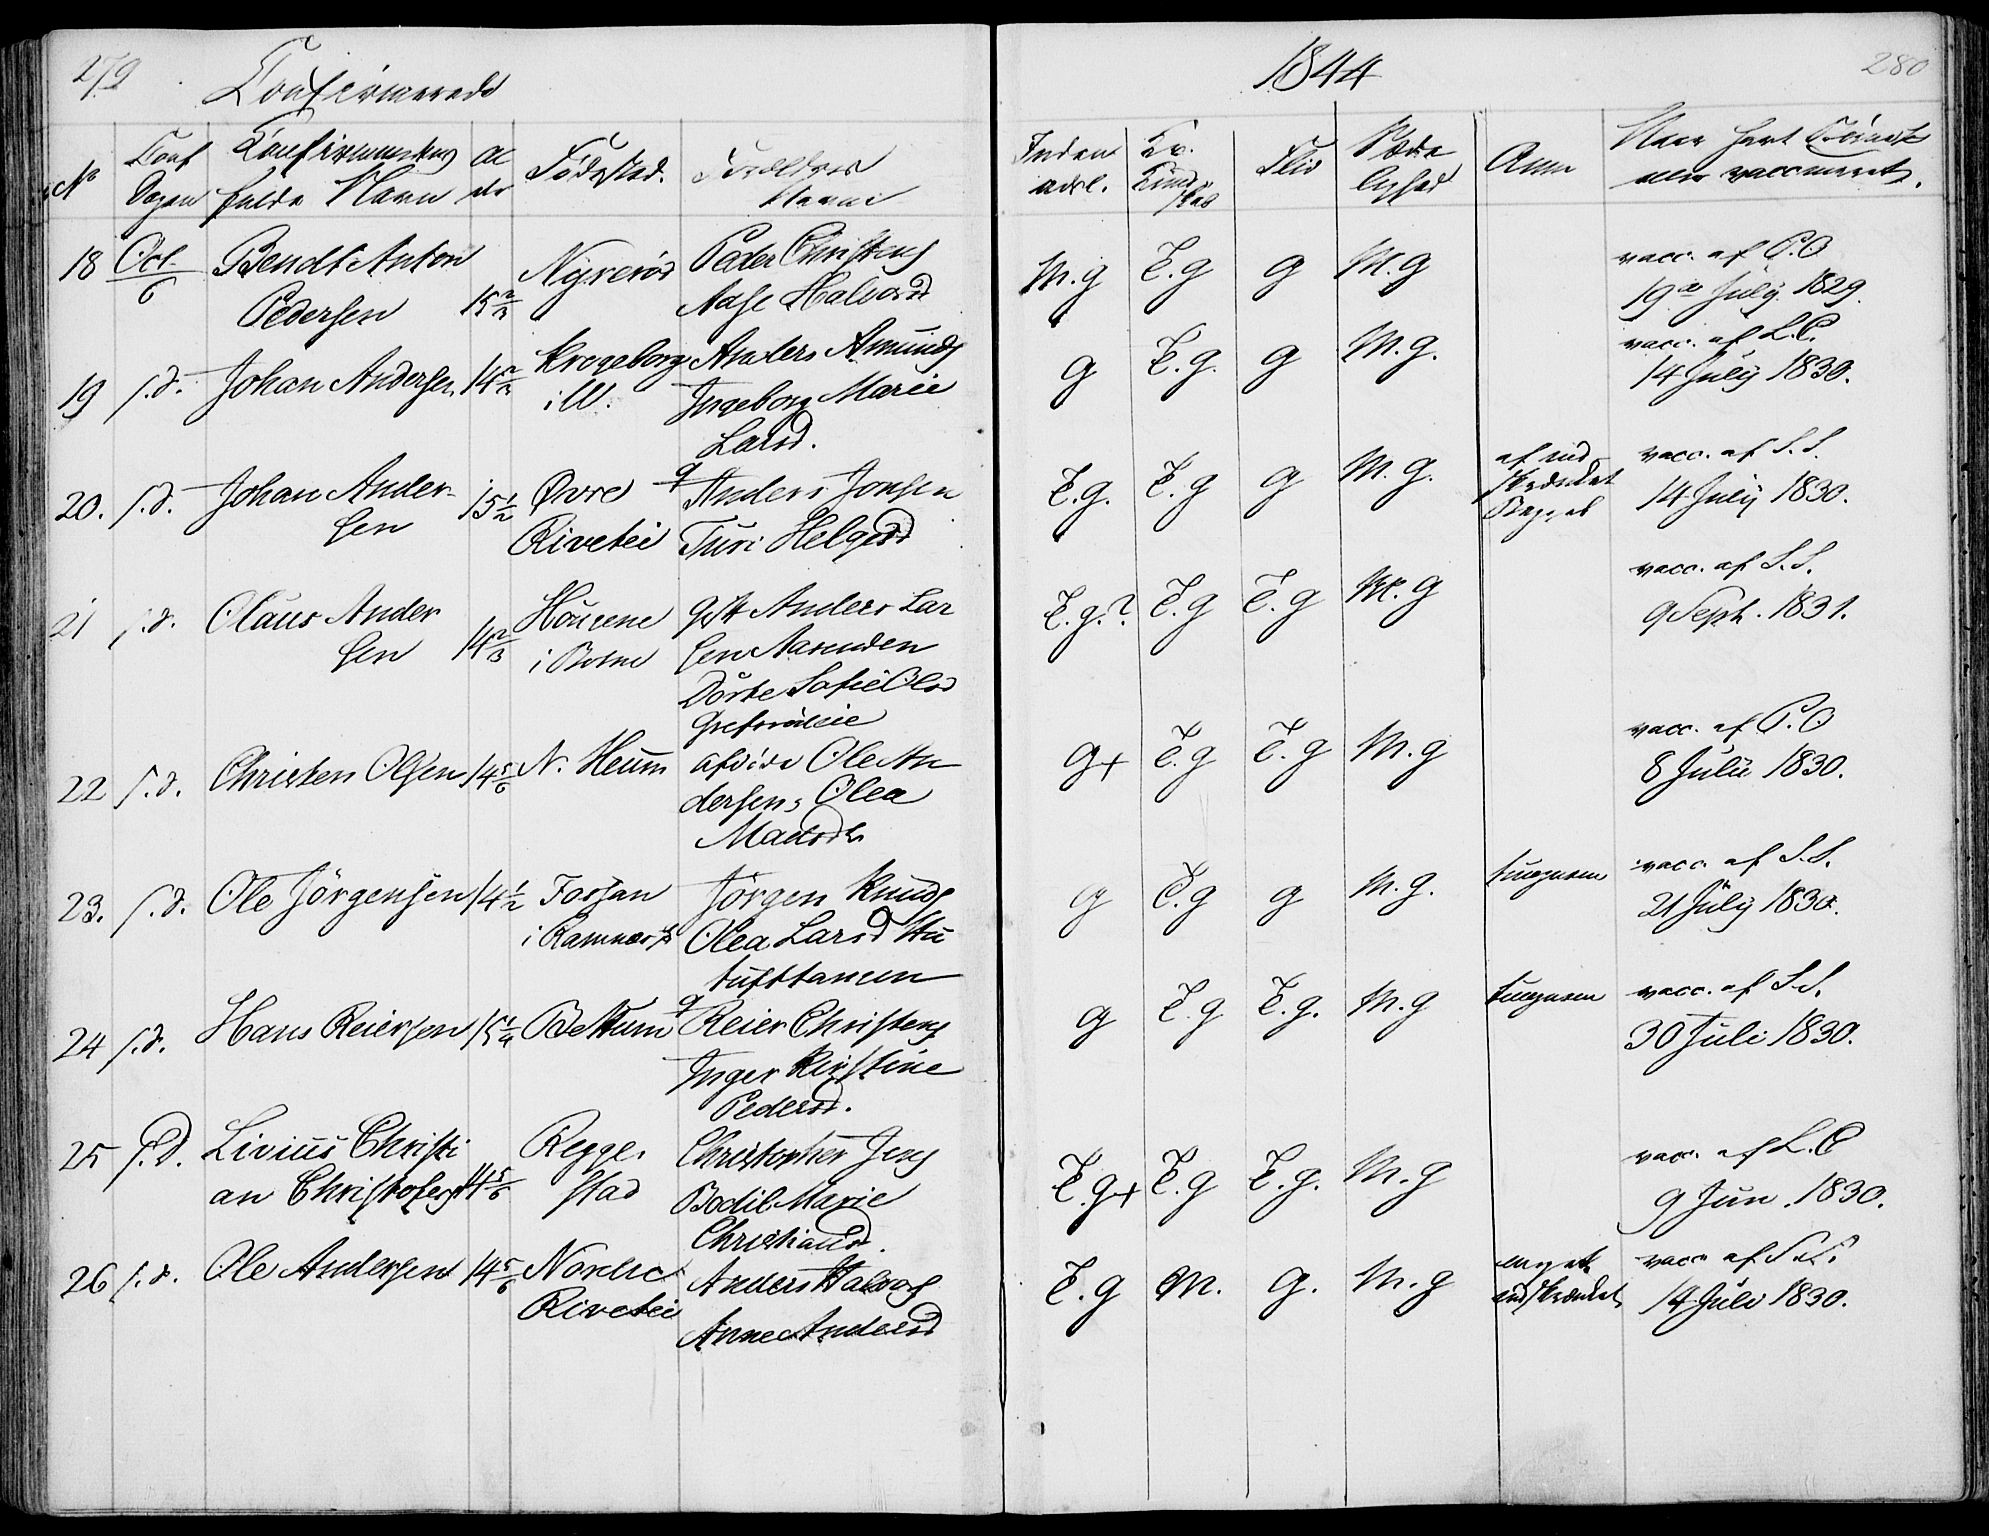 279
Confirmerede
1844
280
No
Conf Dagen
Confirmantens fulde Navn
Al der
Födested.
Forældres Navne
Inden adsl.
Kr. Kund skab
Flid
Sæde lighed
Anm
Naar havt
eller vaccineret.
18 Oct 6 Bendt Anton Pedersen 15 2/3 Nyrerød Peder Christens Aase Halvorsd M.g T.g g M.g vacc. af P.O 19de July 1829.
19 s.d. Johan Andersen 14 2/3 Krogeborg i W. Anders Amunds Ingeborg Marie Larsd. g T.g. g M.g. vacc. af L.C. 14 July 1830.
20. s.d. Johan Andersen 15 1/2 Øvre Rivetei Anders Jonsen Turi Helgesd T.g. T.g g M.g. af ind skrænket vacc. af S.S. 14 July 1830.
21 s.d. Olaus Andersen 14 2/3 i Botne Anders Larsen Aarnuden Dorte Sofie Olsd T.g.? T.g T.g M.g vacc. af S.S. 9 Sept. 1831.
22 s.d. Christen Olsen 14 5/6 N. Heum afdöde Ole Andersen, Olea Madsdr g+ T.g T.g M.g vacc. af P.O 8 Juli 1830.
23. s.d. Ole Jörgensen 14 1/2 Fossan i Ramnæs Jörgen Knuds Olea Larsd g T.g g M.g. tungnem vacc. af S.S. 21 July 1830.
24 s.d. Hans Reiersen 15 1/4 Bettum Reier Christens Inger Kirstine Pedersd. g T.g T.g. M.g tungnem vacc. af S.S. 30 Juli 1830.
25 s.d. Livius Christian Christofers 14 5/6 Reggestad Christopher Jens Bodil Marie Christiansd. T.g+ T.g T.g. M.g vacc. af L.C 9 Jun. 1830.
26 s.d. Ole Andersen 14 5/6 Nordre Rivetei Anders Halvors Anne Andersd T.g M. g. M.g meget indskrænket vacc af S.S. 14 Juli 1830.